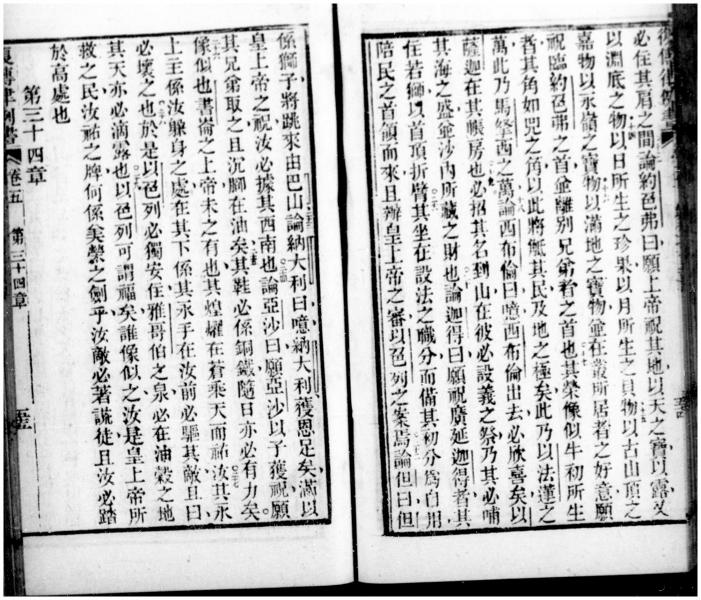 必住其肩之間論約邑弗曰願上帝祝其地以天之寶以露又
以淵底之物以日所生之珍果以月所生之貝物以古山頂之
嘉物以永嶺之寶物以滿地之寶物並在叢所居者之好意願
祝臨約邑弗之首並離別兄弟者之首也其榮像似牛初所生
者其角如兕之角以此將觝其民及地之極矣此乃以法蓮之
萬此乃馬拿西之萬論西布倫曰噫西布倫出去必欣喜矣以
薩迦在其帳房也必招其名利山在彼必設義之祭乃其必哺
其海之盛並沙內所藏之財也論迦得曰願祝廣延迦得者其
住若獅以首頂折臂其坐在設法之職分而備其初分為自用
陪民之首領而來且辦皇上帝之審以邑列之案焉論但曰但
係獅子將跳來由巴山論納大利曰噫納大利獲恩足矣滿以
皇上帝之祝汝必據其西南也論亞沙曰願亞沙以子獲祝願
其兄弟取之且沉腳在油矣其鞋必係銅鐵隨日亦必有力矣
像似也書崙之上帝未之有也其煌耀在蒼乘天而祐汝其永
上主係汝躲身之處在其下係其永手在汝前必驅其敵且曰
必壞之也於是以邑列必獨安住雅哥伯之泉必在油穀之地
其天亦必滴露也以邑列可謂福矣誰像似之汝是皇上帝所
救之民汝祐之牌何係矣榮之劍乎汝敵必著謊徒且汝必踏
於高處也
第三十四章
復傳律例書 卷五 第三十四章 五